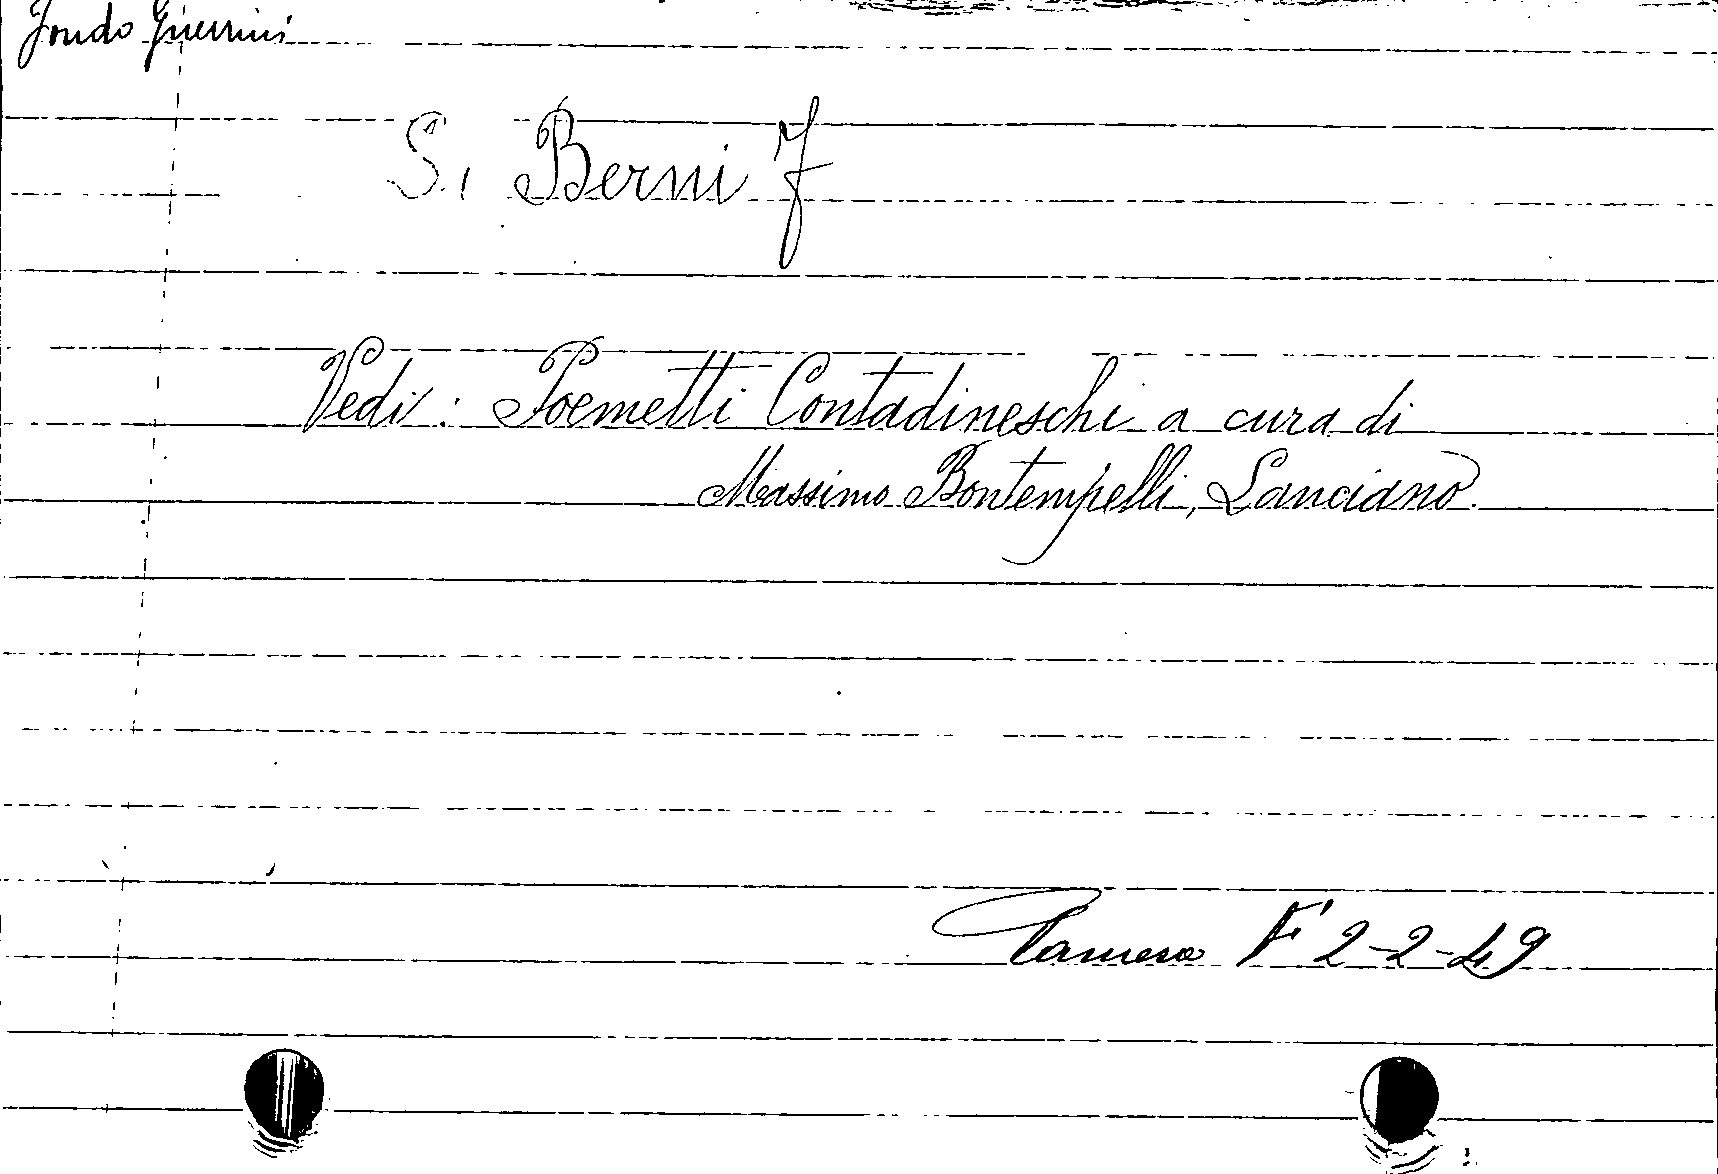 Fondo Guerrini
S. Berni F
Vedi: Poemetti Contadineschi a cura di
Massimo Bontempelli, Lanciano.
Camera F' 2-2-49